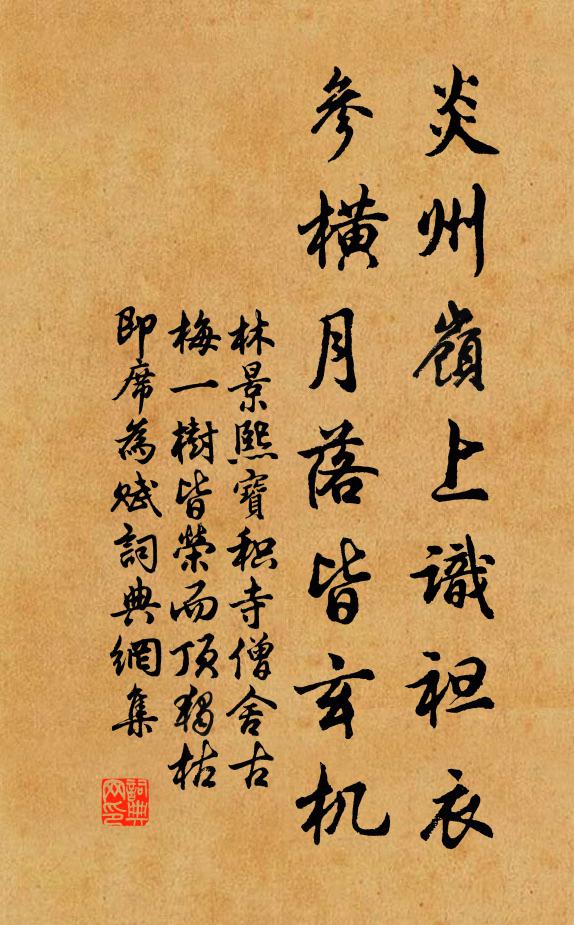 炎州嶺上識祖衣
參橫月落皆玄机
林景熙寶积寺僧舍古
梅一樹皆榮而頂獨枯
即席為賦詞典網集
詞典网印